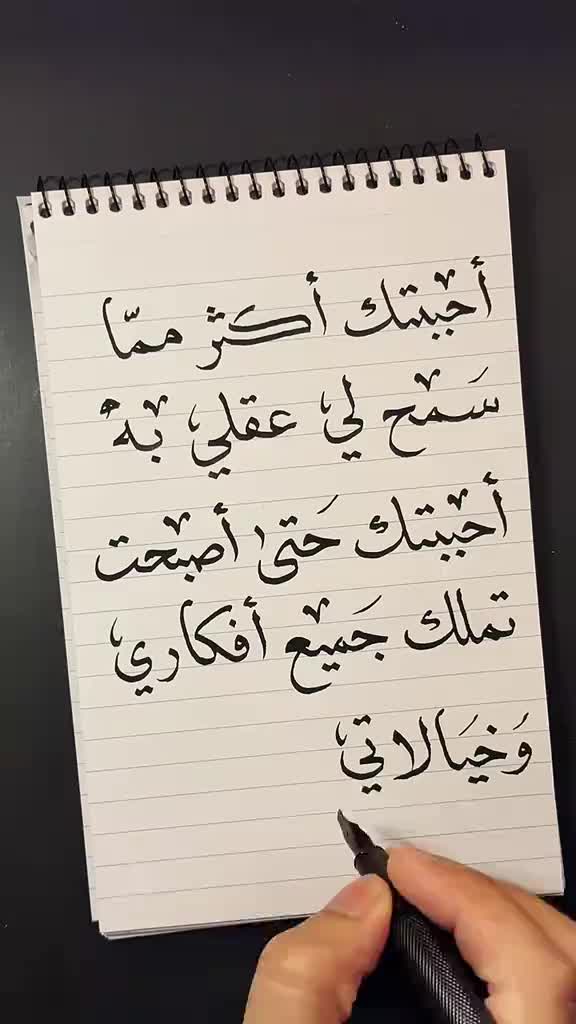 أحببتك أكثر ممّا
سَمح لي عقلي به
أحببتك حَتىٰ أصبحت
تملك جَميع أفكاري
وَخيَالاتي